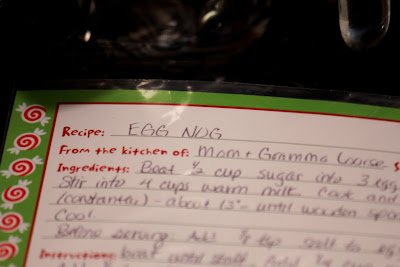 Recipe: EGG NOG
From the kitchen of: Mom + Gramma
Ingredients: Beat ½ cup sugar into 3 egg
Stir into 4 cups warm milk. Cook and
(constantly) - about 13" - until wooden spoo
Cool.
Before serving: Add ¼ tsp salt to eg
Instructions: beat until stiff. Add ¼ cup